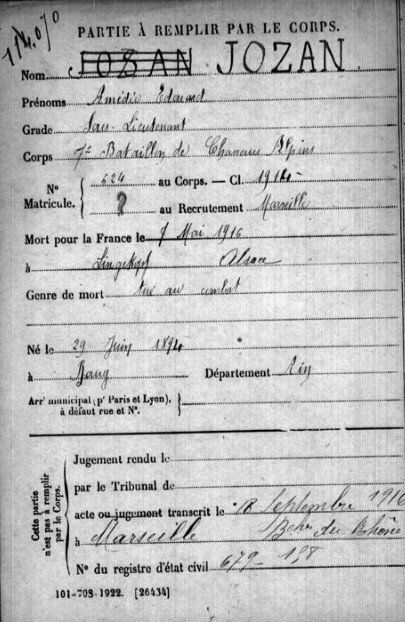 114.070
PARTIE À REMPLIR PAR LE CORPS.
Nom JOSAN JOZAN
Prénoms Amédée Edouard
Grade Sous-Lieutenant
Corps 7e Bataillon de Chasseurs Alpins
N° Matricule. 624 au Corps. — Cl. 1914
? au Recrutement Marseille
Mort pour la France le 7 Mai 1916
à Lingekopf Alsace
Genre de mort tué au combat
Né le 29 Juin 1894
à Bourg Département Ain
Arrt municipal (pr Paris et Lyon),
à défaut rue et N°.
Cette partie n'est pas à remplir par le Corps.
Jugement rendu le
par le Tribunal de
acte ou jugement transcrit le 18 Septembre 1916
à Marseille Bches du Rhône
N° du registre d'état civil 679-138
101-708-1922. [26434]